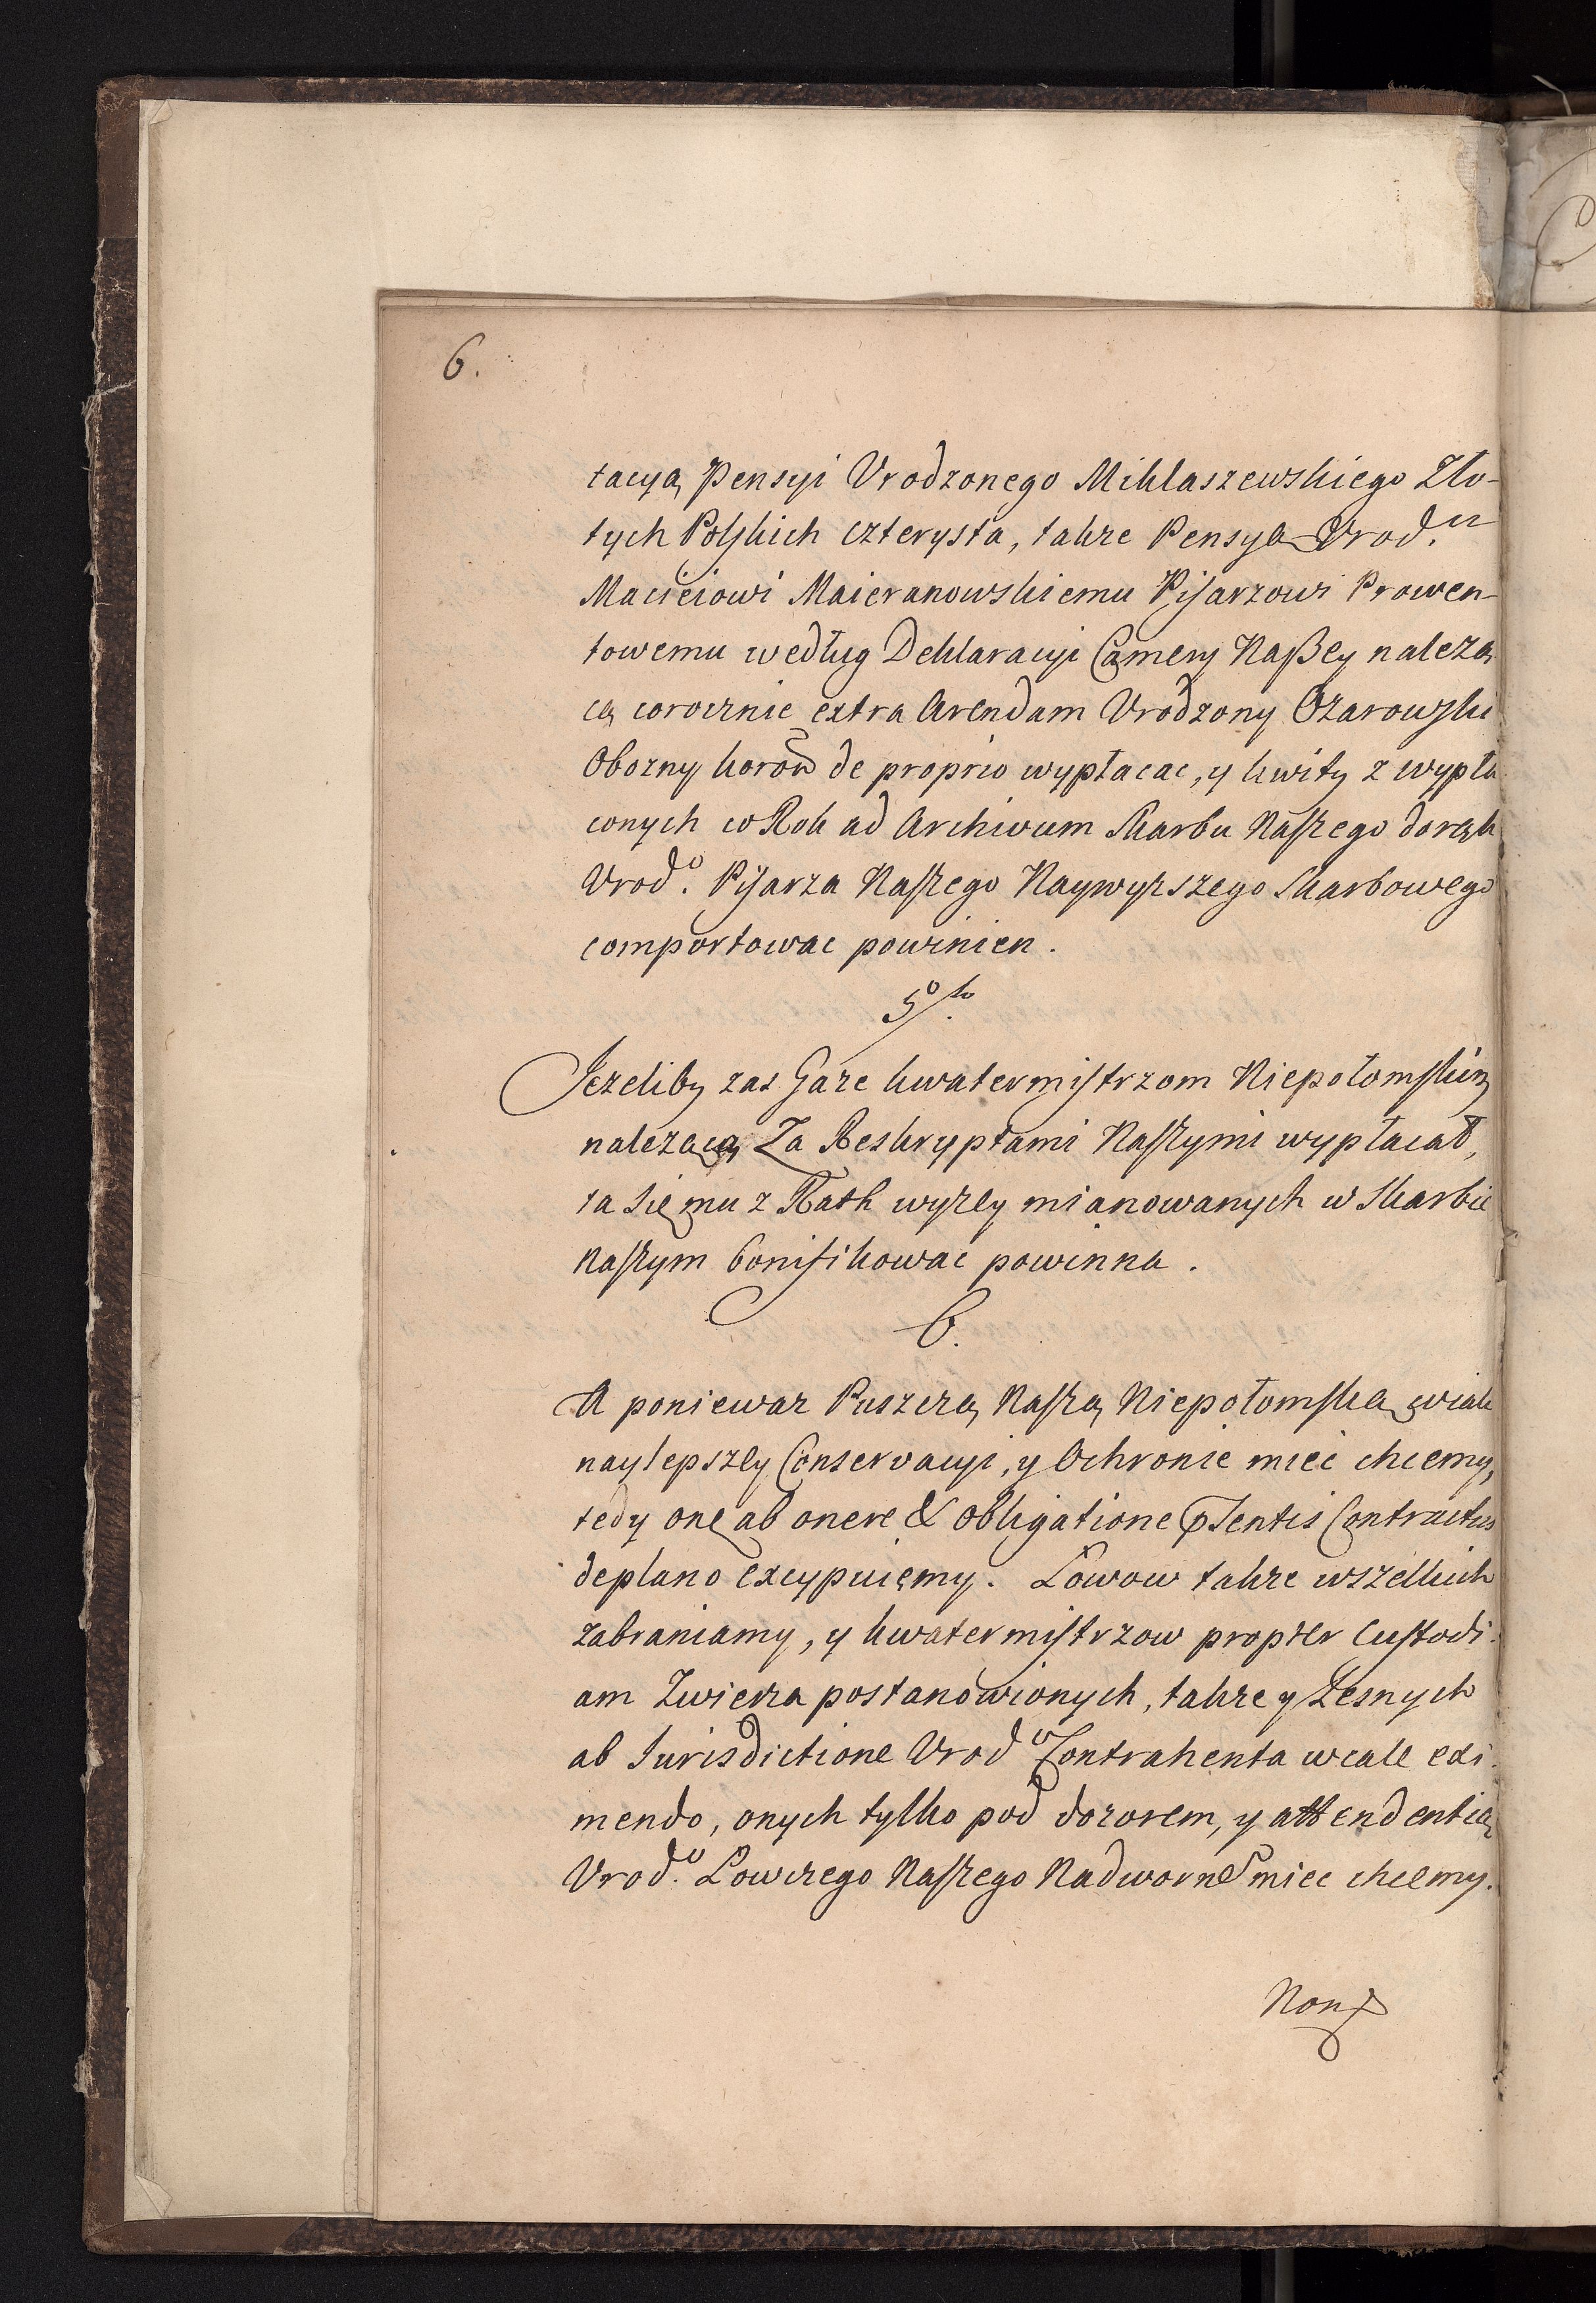 6.
tacyą Pensyi Vrodzonego Miklaszewskiego Zło-
tych Polskich czterysta, takze Pensyą Vrod.
Macieiowi Maieranowskiemu Pisarzowi Prowen-
towemu według Deklaracyi Camery Naßey nalezą
cą corocznie extra Arendam Vrodzony Ozarowski
Obozny koron̄ de proprio wypłacac, y kwity z wypła
conych co Rok ad Archivum Skarbu Naszego do rąk
Vrod.º Pisarza Naszego Naywyzszego Skarbowego
comportowac powinien.
5.to
Jezeliby zas Gaze kwatermistrzom Niepołomskim
nalezącą Za Reskryptami Naszymi wypłacał,
ta się mu z Rath wyzey mianowanych w Skarbie
Naszym bonifikowac powinna.
6.
A poniewaz Puszczą Naszą Niepołomską w iak
naylepszey Conservacyi, y Ochronie miec chcemy,
tedy onę ab onere & obligatione p̄sentis Contractus
deplano excypuięmy. Łowow takze wszelkich
zabraniamy, y kwatermistrzow propter Custodi-
am Zwierza postanowionych, takze y Lesnych
ab Iurisdictione Vrodº Contrahenta wcale exi-
mendo, onych tylko pod dozorem, y attendentią
Vrod.º Łowczego Naszego Nadworne° miec chcemy.
Non